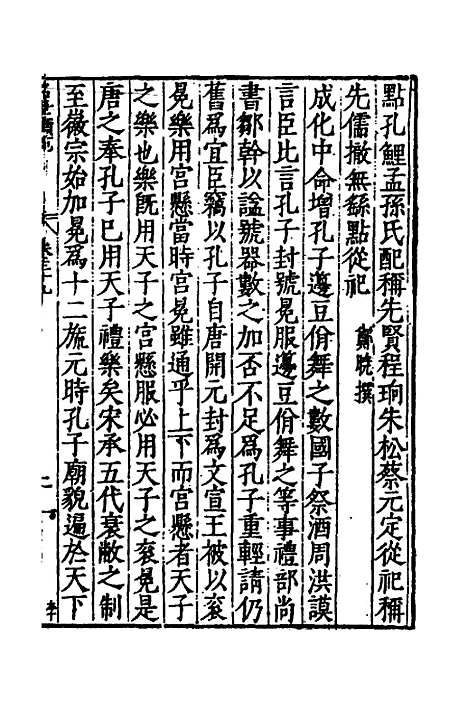 點孔鯉孟孫氏配稱先賢程珦朱松蔡元定從祀稱
先儒撤無繇點從祀
鄭曉撰
成化中命增孔子籩豆佾舞之數國子祭酒周洪謨
言臣比言孔子封號冕服籩豆佾舞之等事禮部尚
書鄒幹以諡號器數之加否不足爲孔子重輕請仍
舊爲宜臣竊以孔子自唐開元封爲文宣王被以衮
冕樂用宮懸當時宮冕雖通乎上下而宮懸者天子
之樂也樂既用天子之宮懸服必用天子之衮冕是
唐之奉孔子已用天子禮樂矣宋承五代衰敝之制
至徽宗始加冕爲十二旒元時孔子廟貌遍於天下